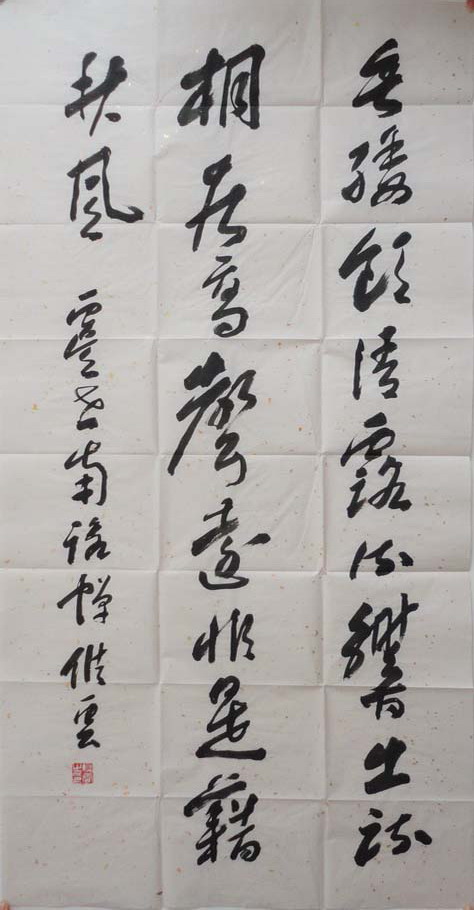 垂緌飲清露流響出疏
桐居高聲遠非是藉
秋風
虞世南詠蟬 雲